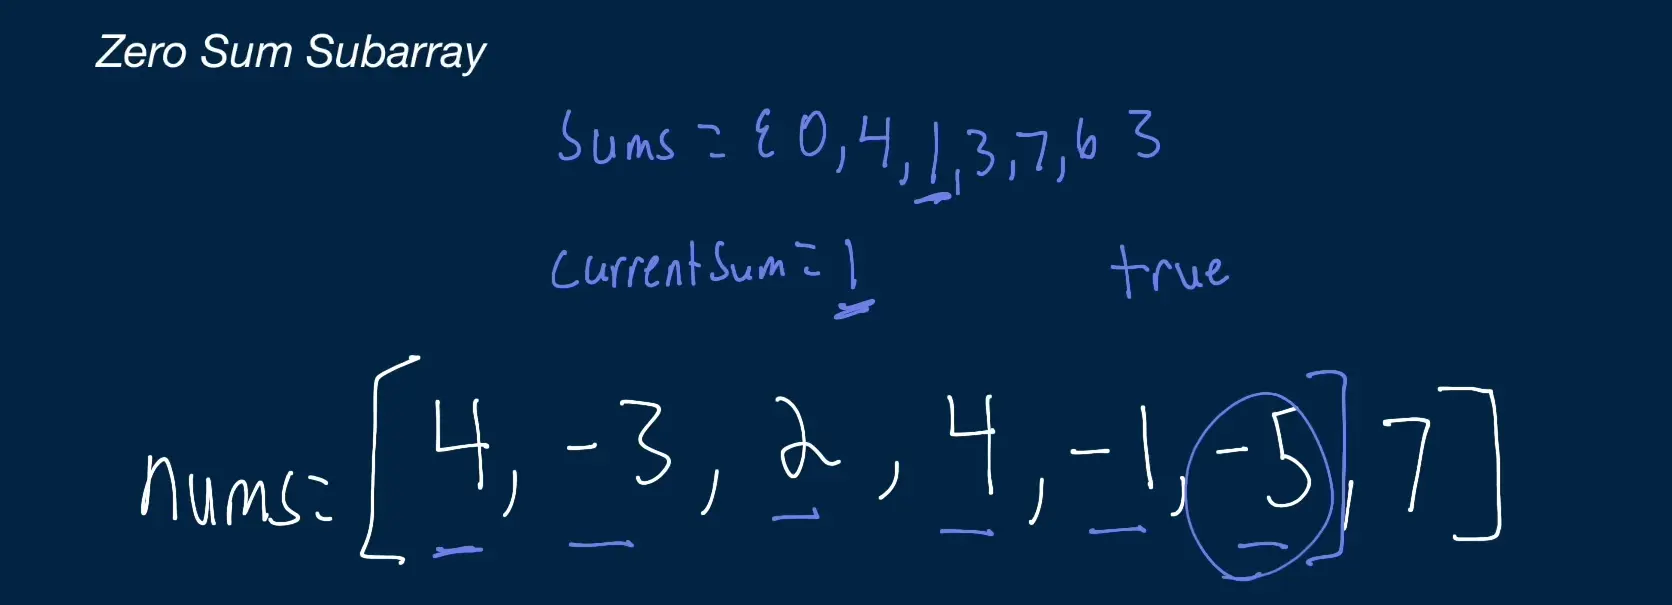 Zero Sum Subarray
sums = { 0, 4, 1, 3, 7, 6 }
currentSum = 1 true
nums = [ 4, -3, 2, 4, -1, -5 ], 7 ]